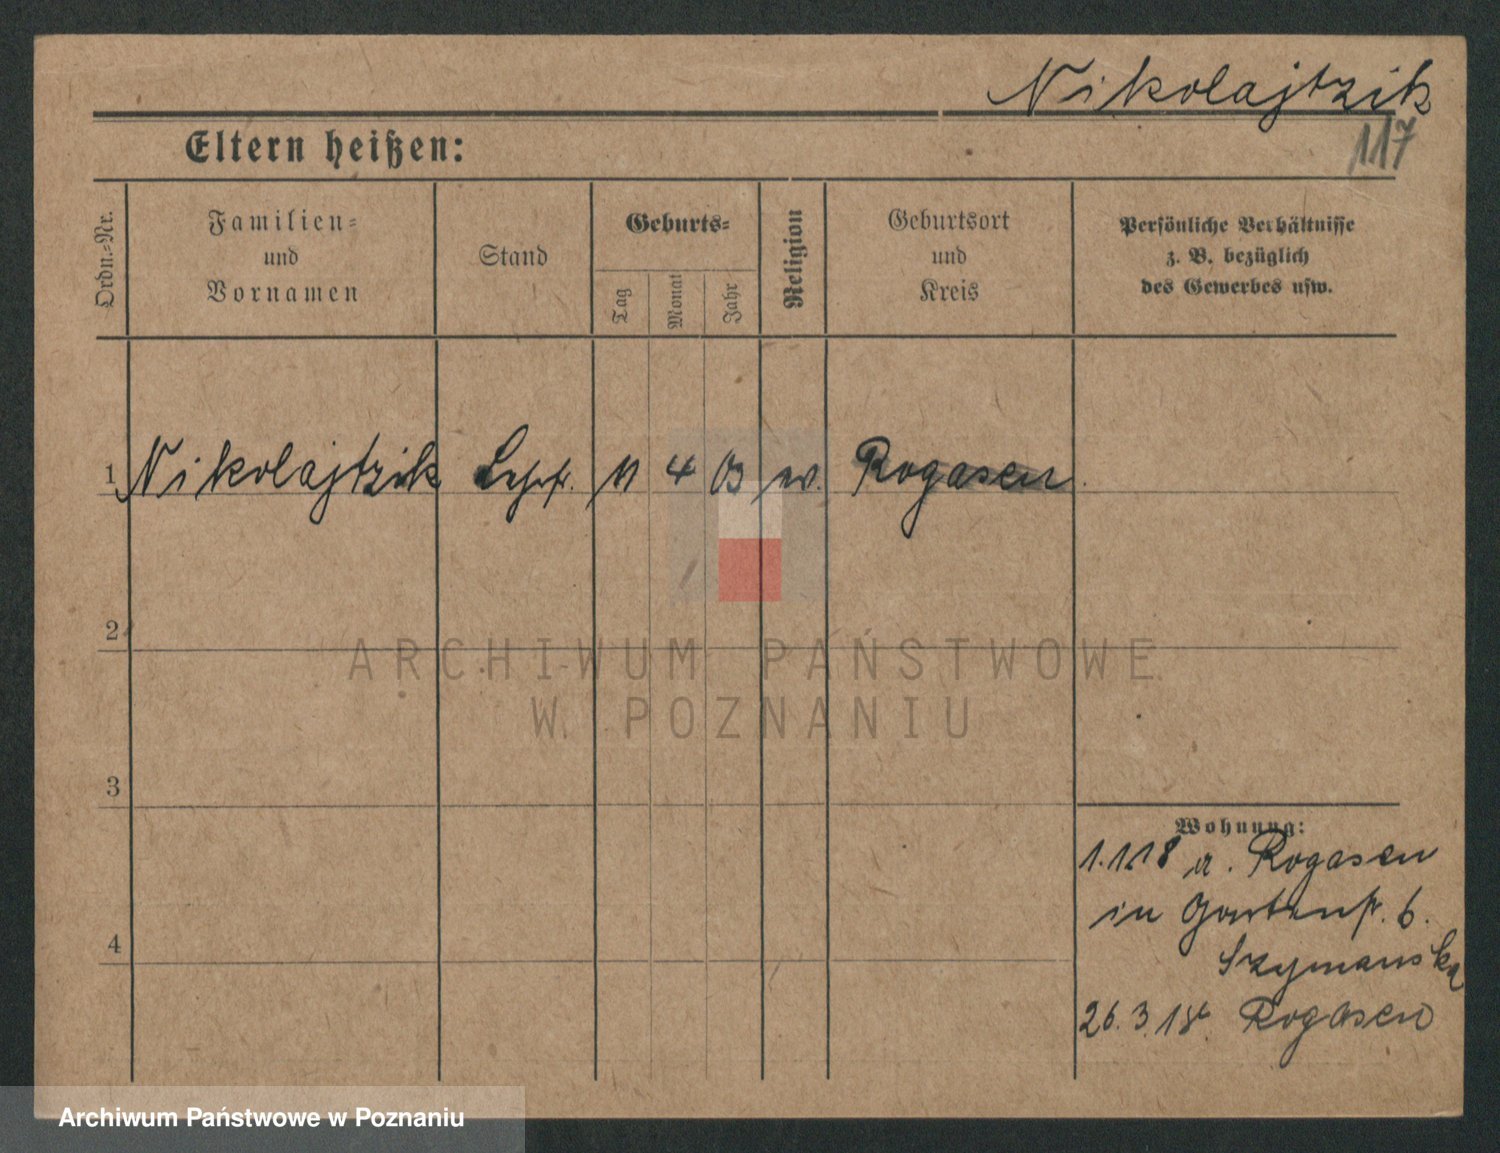 Nikolajtzik
117
Eltern heißen:
Ordn.-Nr.
Familien-
und
Vornamen
Stand
Geburts-
Tag
Monat
Jahr
Religion
Geburtsort
und
Kreis
Persönliche Verhältnisse
z. B. bezüglich
des Gewerbes usw.
1 Nikolajtzik 11 4 03 Rogasen
2
ARCHIWUM PAŃSTWOWE
W POZNANIU
3
Wohnung:
1.1.18 a. Rogasen
in Gartenstr. 6.
Szymanska
4
26.3.18 Rogasen
Archiwum Państwowe w Poznaniu